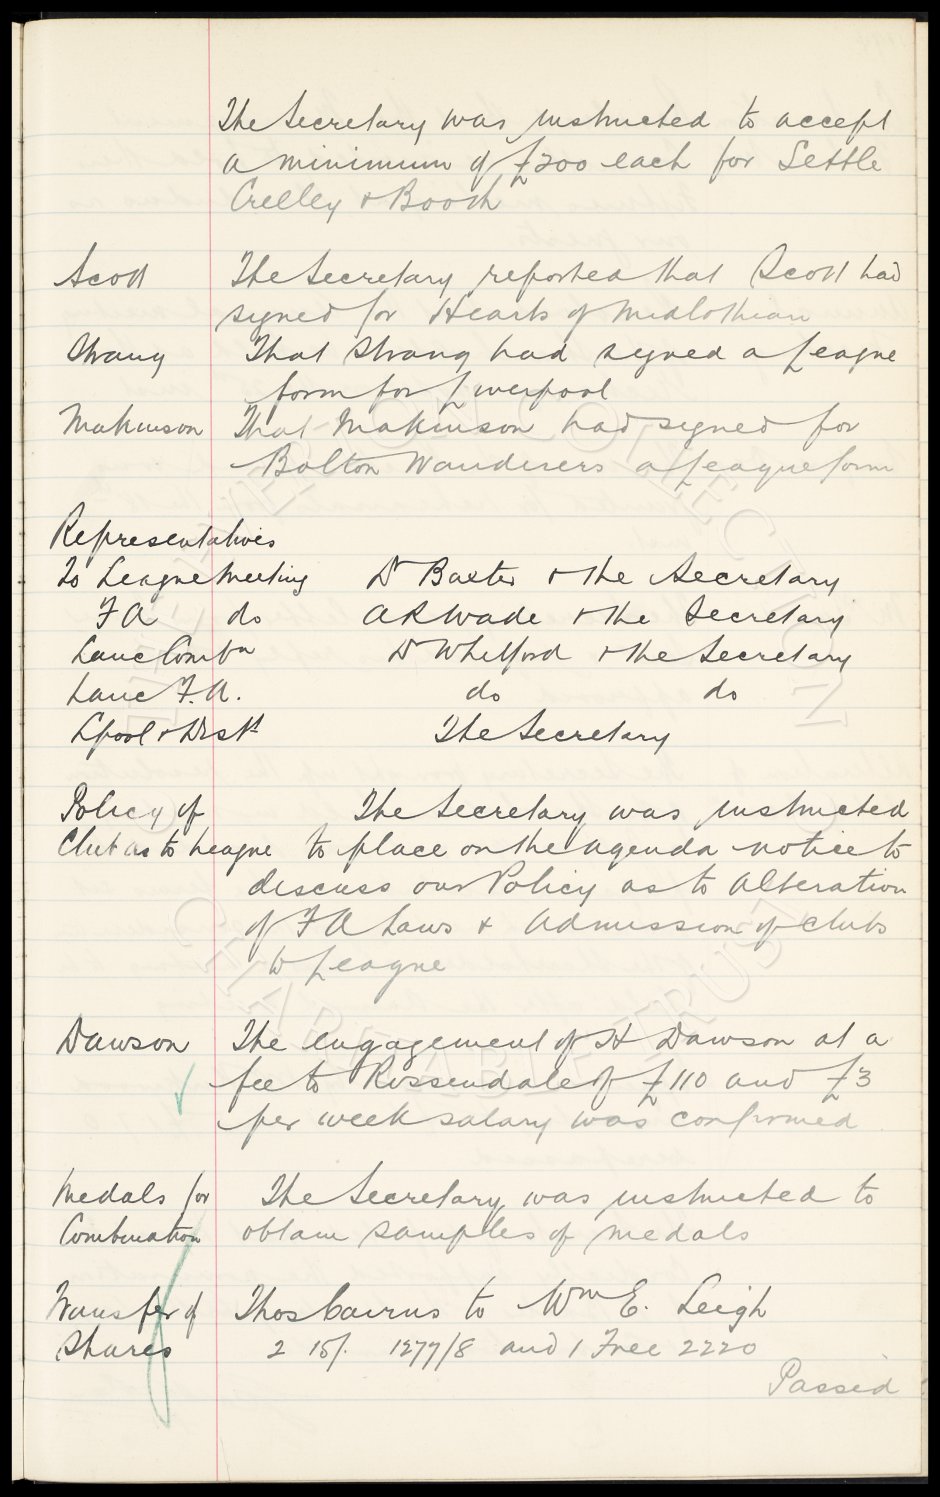 The Secretary was instructed to accept
a minimum of £200 each for Settle
Crelley & Booth
Scott The Secretary reported that Scott had
signed for Hearts of Midlothian
Strang That Strang had signed a League
form for Liverpool
Makinson That Makinson had signed for
Bolton Wanderers a League form
Representatives
To League Meeting Dr Baxter & the Secretary
FA do AR Wade & the Secretary
Lanc Combn Dr Whitford & the Secretary
Lanc F.A. do do
Lpool & Dist The Secretary
Policy of The Secretary was instructed
Club as to League to place on the agenda notice to
discuss our Policy as to Alteration
of FA Laws & Admission of clubs
to League
Dawson The engagement of H Dawson at a
fee to Rossendale of £110 and £3
per week salary was confirmed
Medals for The Secretary was instructed to
Combination obtain samples of medals
Transfer of Thos Cairns to Wm E. Leigh
Shares 2 15/. 1277/8 and 1 Free 2220
Passed
EVERTON COLLECTION
CHARITABLE TRUST